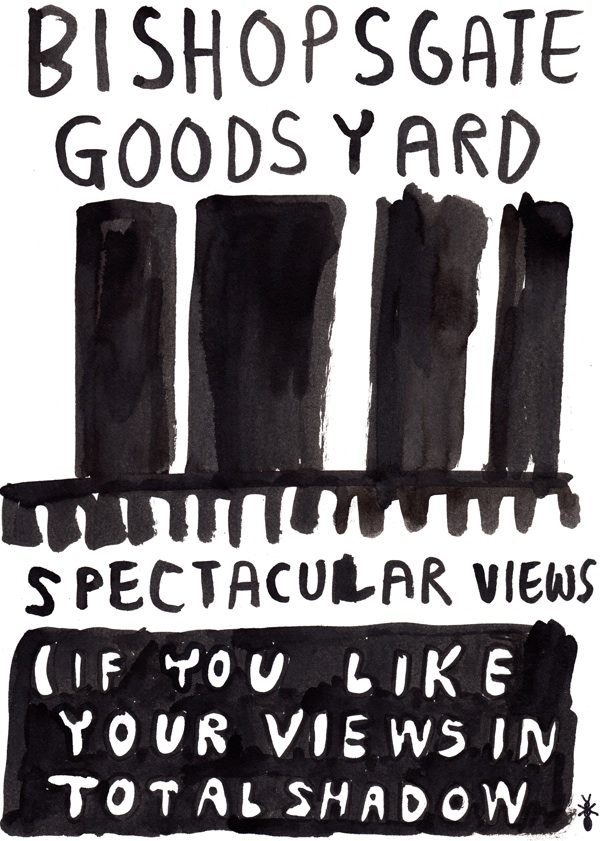 BISHOPSGATE
GOODS YARD
SPECTACULAR VIEWS
(IF YOU LIKE
YOUR VIEWS IN
TOTAL SHADOW